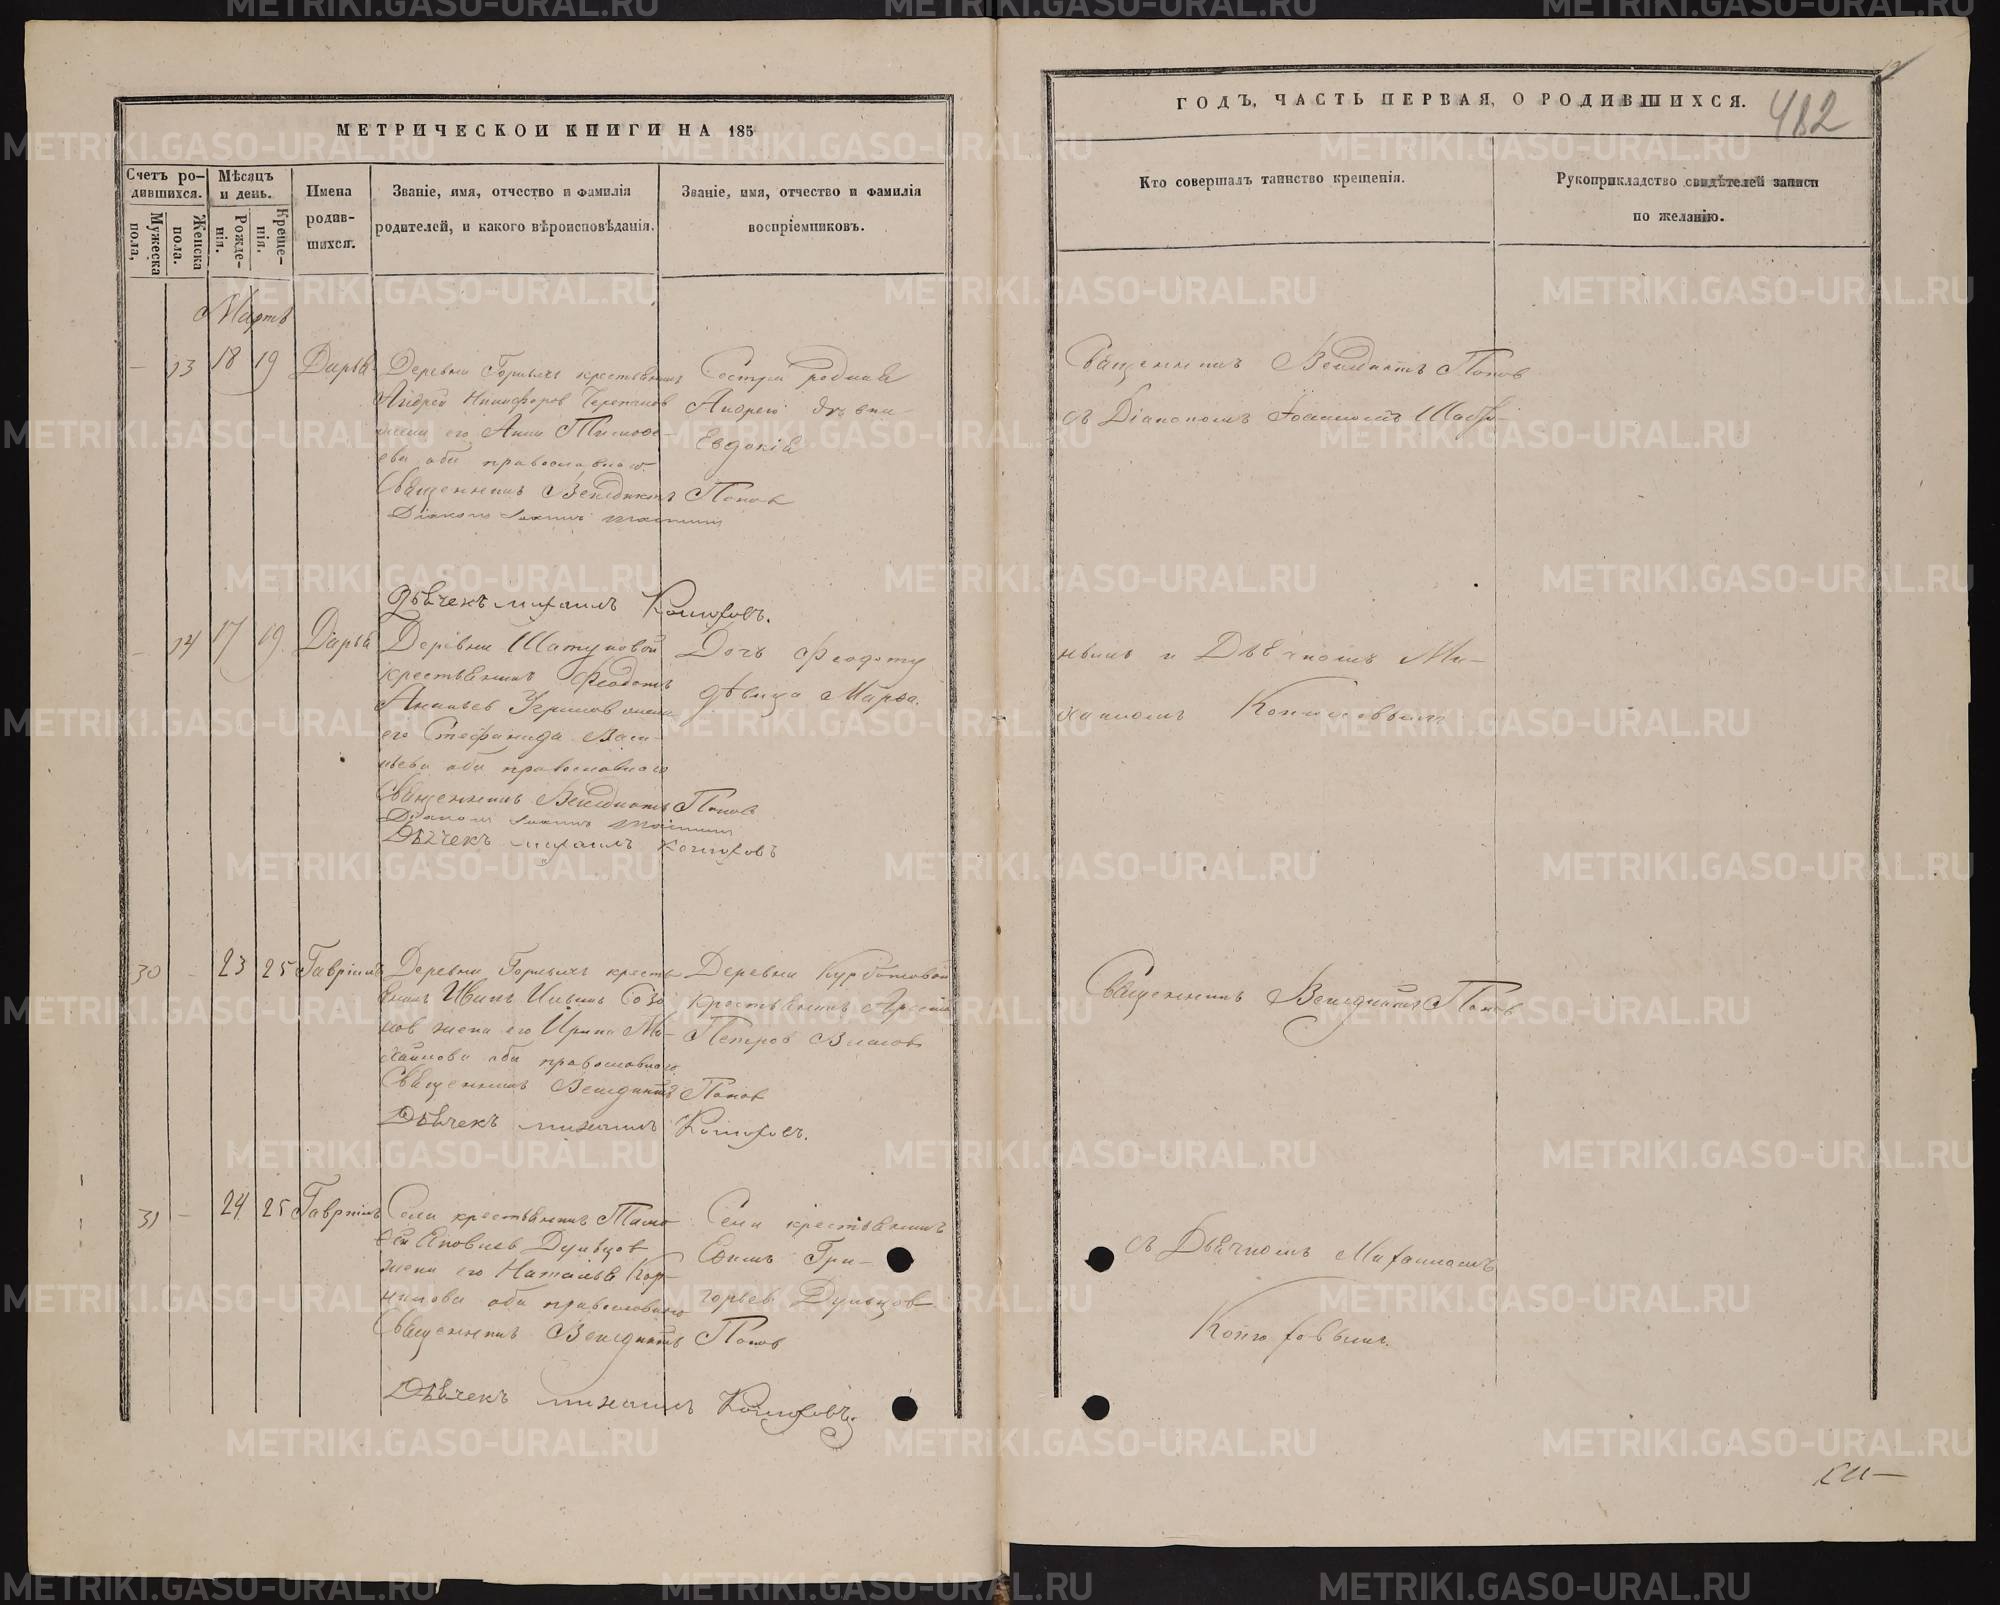 МЕТРИЧЕСКОЙ КНИГИ НА 185
Счетъ ро-
дившихся.
Мужеска
пола,
Женска
пола.
Мѣсяцъ
и день.
Рожде-
нія.
Креще-
нія.
Имена
родив-
шихся.
Званіе, имя, отчество и фамилія
родителей, и какого вѣроисповѣданія.
Званіе, имя, отчество и фамилія
воспріемниковъ.
Мартъ
13 18 19 Дарья
Деревни крестьянинъ
Андрей Никифоров Черепанов
жена его Анна Тимофе-
ева оба православнаго
Священникъ Венедиктъ Попов
Діаконъ Іоаннъ
Сестра родная
Андрею дѣвка
Евдокія
Дьячекъ михаилъ
14 17 19 Дарья
Деревни Шатуновой
крестьянинъ Феодотъ
Ананьев жена
его Стефанида Васи-
льева оба православнаго
Священникъ Венедиктъ Попов
Діаконъ Іоаннъ
Дьячекъ михаилъ
Дочь Феодоту
дѣвица Марѳа.
30 - 23 25 Гавріилъ
Деревни кресть
янинъ Иванъ Ильинъ Созо
нов жена его Ирина Ми-
хайлова оба православнаго
Священникъ Венедиктъ Попов
Дьячекъ михаилъ
Деревни Курбатовой
крестьянинъ
Петров Власов
31 - 24 25 Гавріилъ
Села крестьянинъ Тимо
фей Дульцов
жена его Наталья Кор-
нилова оба православнаго
Священникъ Венедиктъ Попов
Дьячекъ михаилъ
Села крестьянинъ
Ефимъ Гри-
горьев Дульцов
ГОДЪ, ЧАСТЬ ПЕРВАЯ, О РОДИВШИХСЯ.
482
Кто совершалъ таинство крещенія.
Рукоприкладство свидѣтелей записи
по желанію.
Священникъ Венедиктъ Попов
съ Діакономъ Іоанномъ
и Дьячкомъ Ми-
хаиломъ
Священникъ Венедиктъ Попов
съ Дьячкомъ Михаиломъ
METRIKI.GASO-URAL.RU